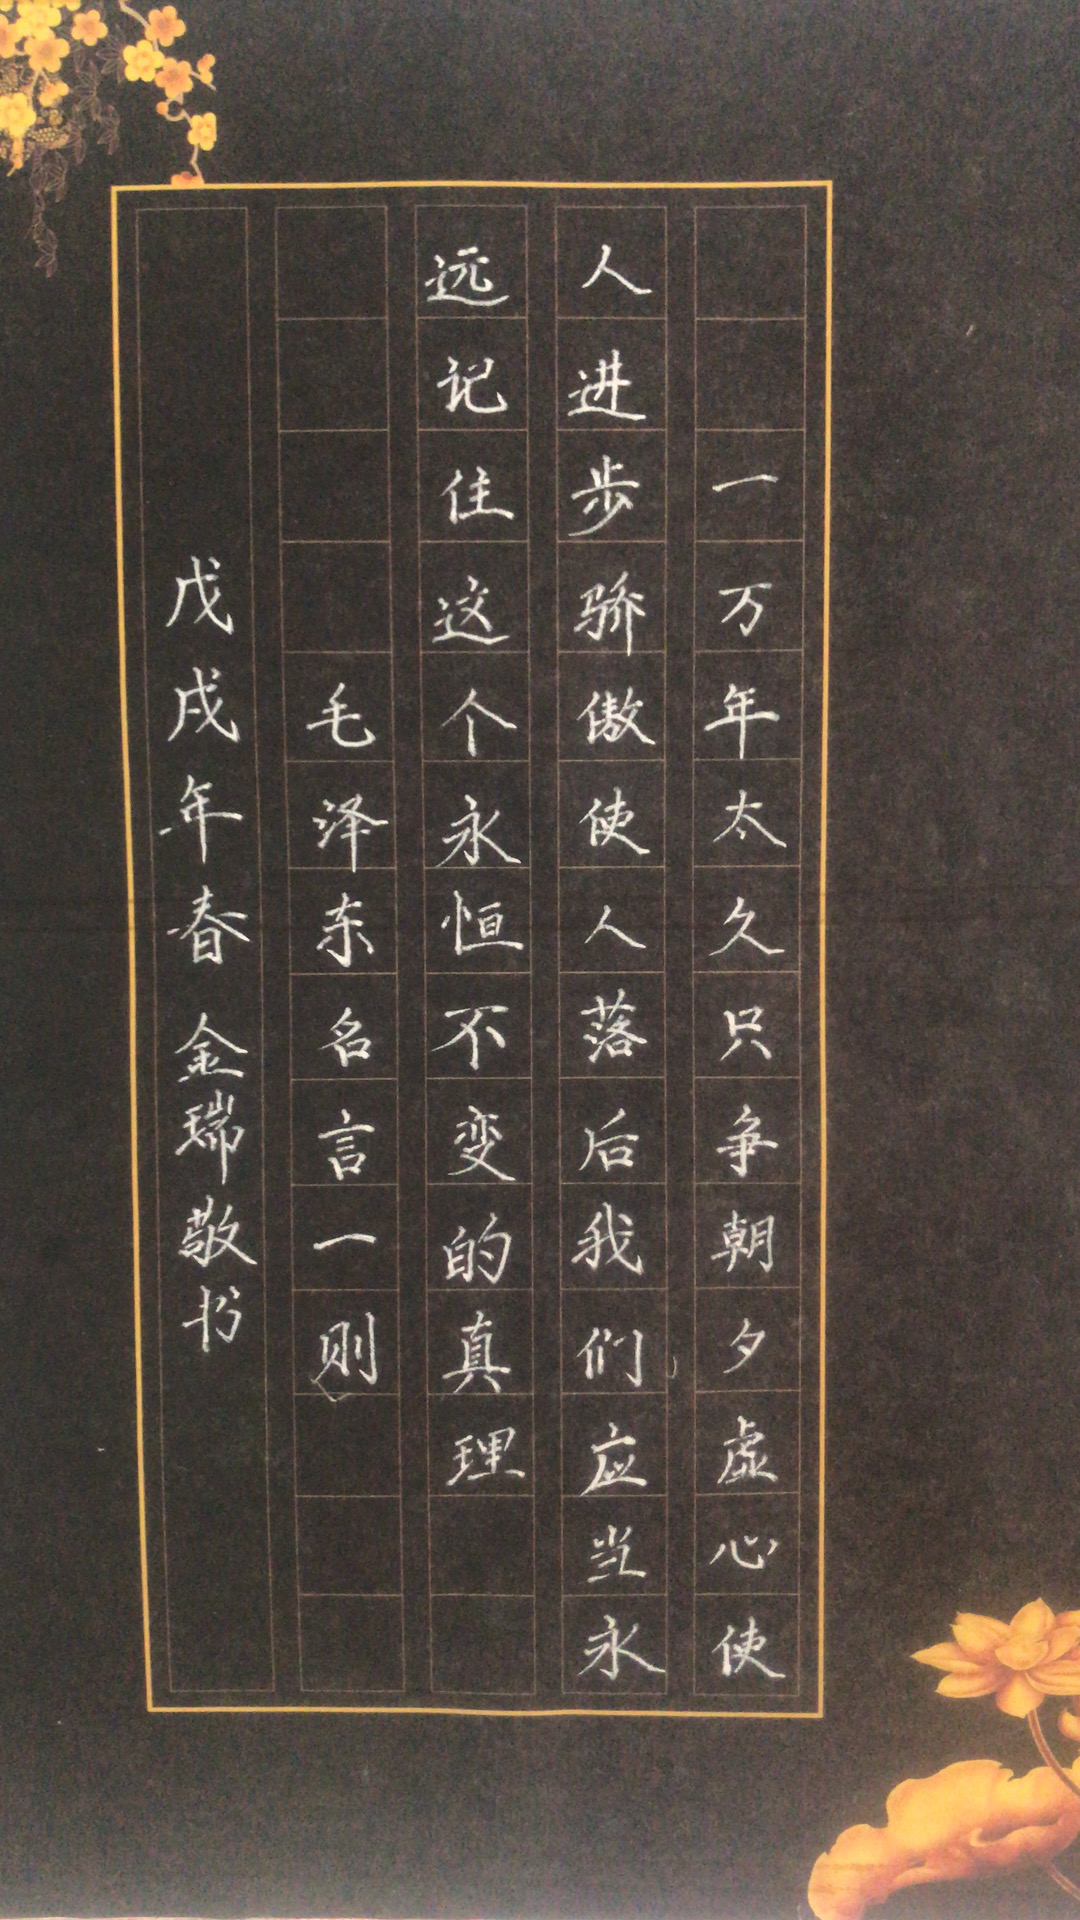 一万年太久只争朝夕虚心使
人进步骄傲使人落后我们应当永
远记住这个永恒不变的真理
毛泽东名言一则
戊戌年春金瑞敬书